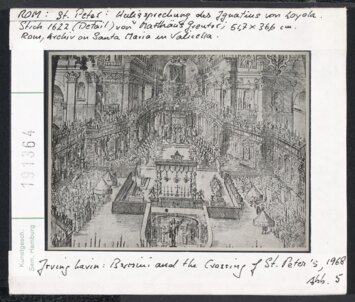 ROM: St. Peter: Heiligsprechung des Ignatius von Loyola.
Stich 1622 (Detail) von Matthäus Greuter, 617 × 366 cm
Rom, Archiv von Santa Maria in Vallicella.
191364
Kunstgesch.
Sem. Hamburg
Irving Lavin: Bernini and the Crossing of St. Peter's, 1968
Abb. 5